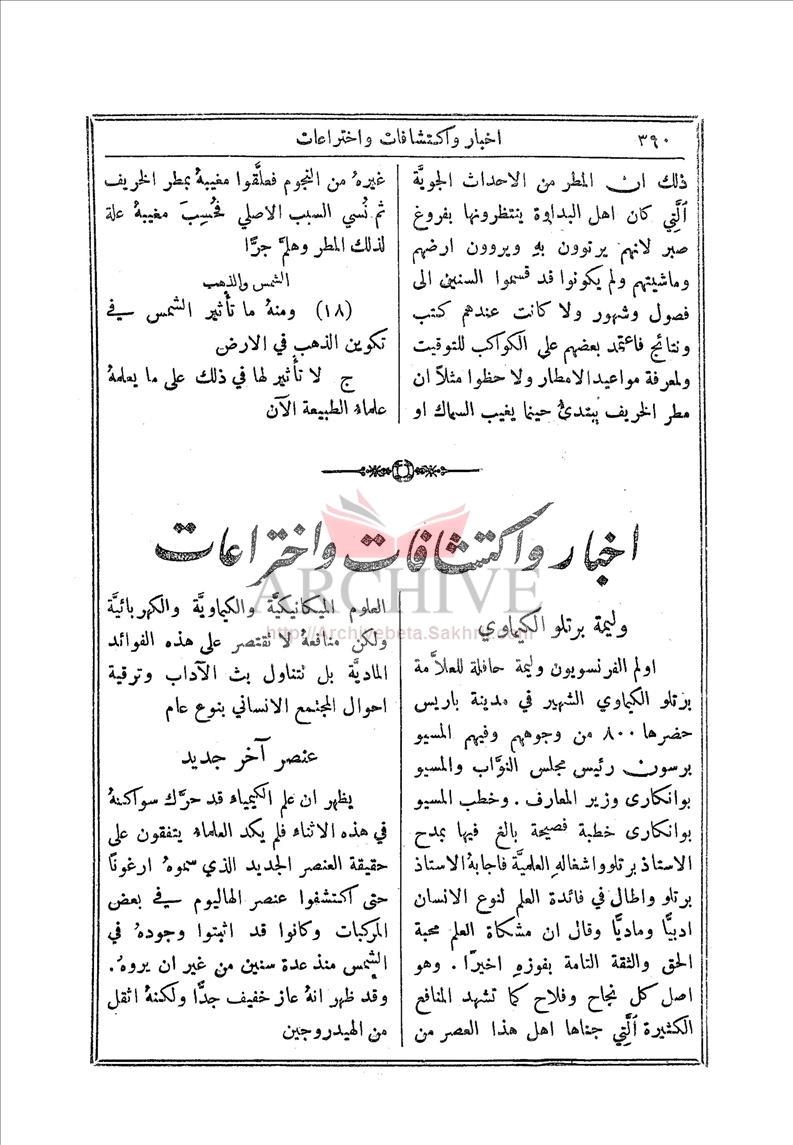 ٣٩٠
اخبار واكتشافات واختراعات
ذلك ان المطر من الاحداث الجوية
الَّتي كان اهل البداوة ينتظرونها بفروغ
صبر لانهم يرتوون بهِ ويروون ارضهم
وماشيتهم ولم يكونوا قد قسموا السنين الى
فصول وشهور ولا كانت عندهم كتب
ونتائج فاعتمد بعضهم على الكواكب للتوقيت
ولمعرفة مواعيد الامطار ولاحظوا مثلاً ان
مطر الخريف يبتدئُ حينما يغيب السماك او
غيرهُ من النجوم فعلَّقوا مغيبهُ بمطر الخريف
ثم نُسي السبب الاصلي فحُسِبَ مغيبهُ علة
لذلك المطر وهلمَّ جرَّا
الشمس والذهب
(١٨) ومنهُ ما تأثير الشمس في
تكوين الذهب في الارض
ج لا تأثير لها في ذلك على ما يعلمهُ
علماء الطبيعة الآن
اخبار واكتشافات واختراعات
ARCHIVE
http://Archivebeta.Sakhrit.com
وليمة برتلو الكيماوي
اولم الفرنسويون وليمة حافلة للعلاَّمة
برتلو الكيماوي الشهير في مدينة باريس
حضرها ٨٠٠ من وجوههم وفيهم المسيو
برسون رئيس مجلس النوَّاب والمسيو
بوانكارى وزير المعارف . وخطب المسيو
بوانكارى خطبة فصيحة بالغ فيها بمدح
الاستاذ برتلو واشغاله العلميَّة فاجابهُ الاستاذ
برتلو واطال في فائدة العلم لنوع الانسان
ادبيًّا وماديًّا وقال ان مشكاة العلم محبة
الحق والثقة التامة بفوزهِ اخيرًا . وهو
اصل كل نجاح وفلاح كما تشهد المنافع
الكثيرة الَّتي جناها اهل هذا العصر من
العلوم الميكانيكيَّة والكيماويَّة والكهربائيَّة
ولكن منافعهُ لا تقتصر على هذه الفوائد
الماديَّة بل تتناول بث الآداب وترقية
احوال المجتمع الانساني بنوع عام
عنصر آخر جديد
يظهر ان علم الكيمياء قد حرَّك سواكنهُ
في هذه الاثناء فلم يكد العلماء يتفقون على
حقيقة العنصر الجديد الذي سموهُ ارغونًا
حتى اكتشفوا عنصر الهاليوم في بعض
المركبات وكانوا قد اثبتوا وجودهُ في
الشمس منذ عدة سنين من غير ان يروهُ .
وقد ظهر انهُ غاز خفيف جدًّا ولكنهُ اثقل
من الهيدروجين